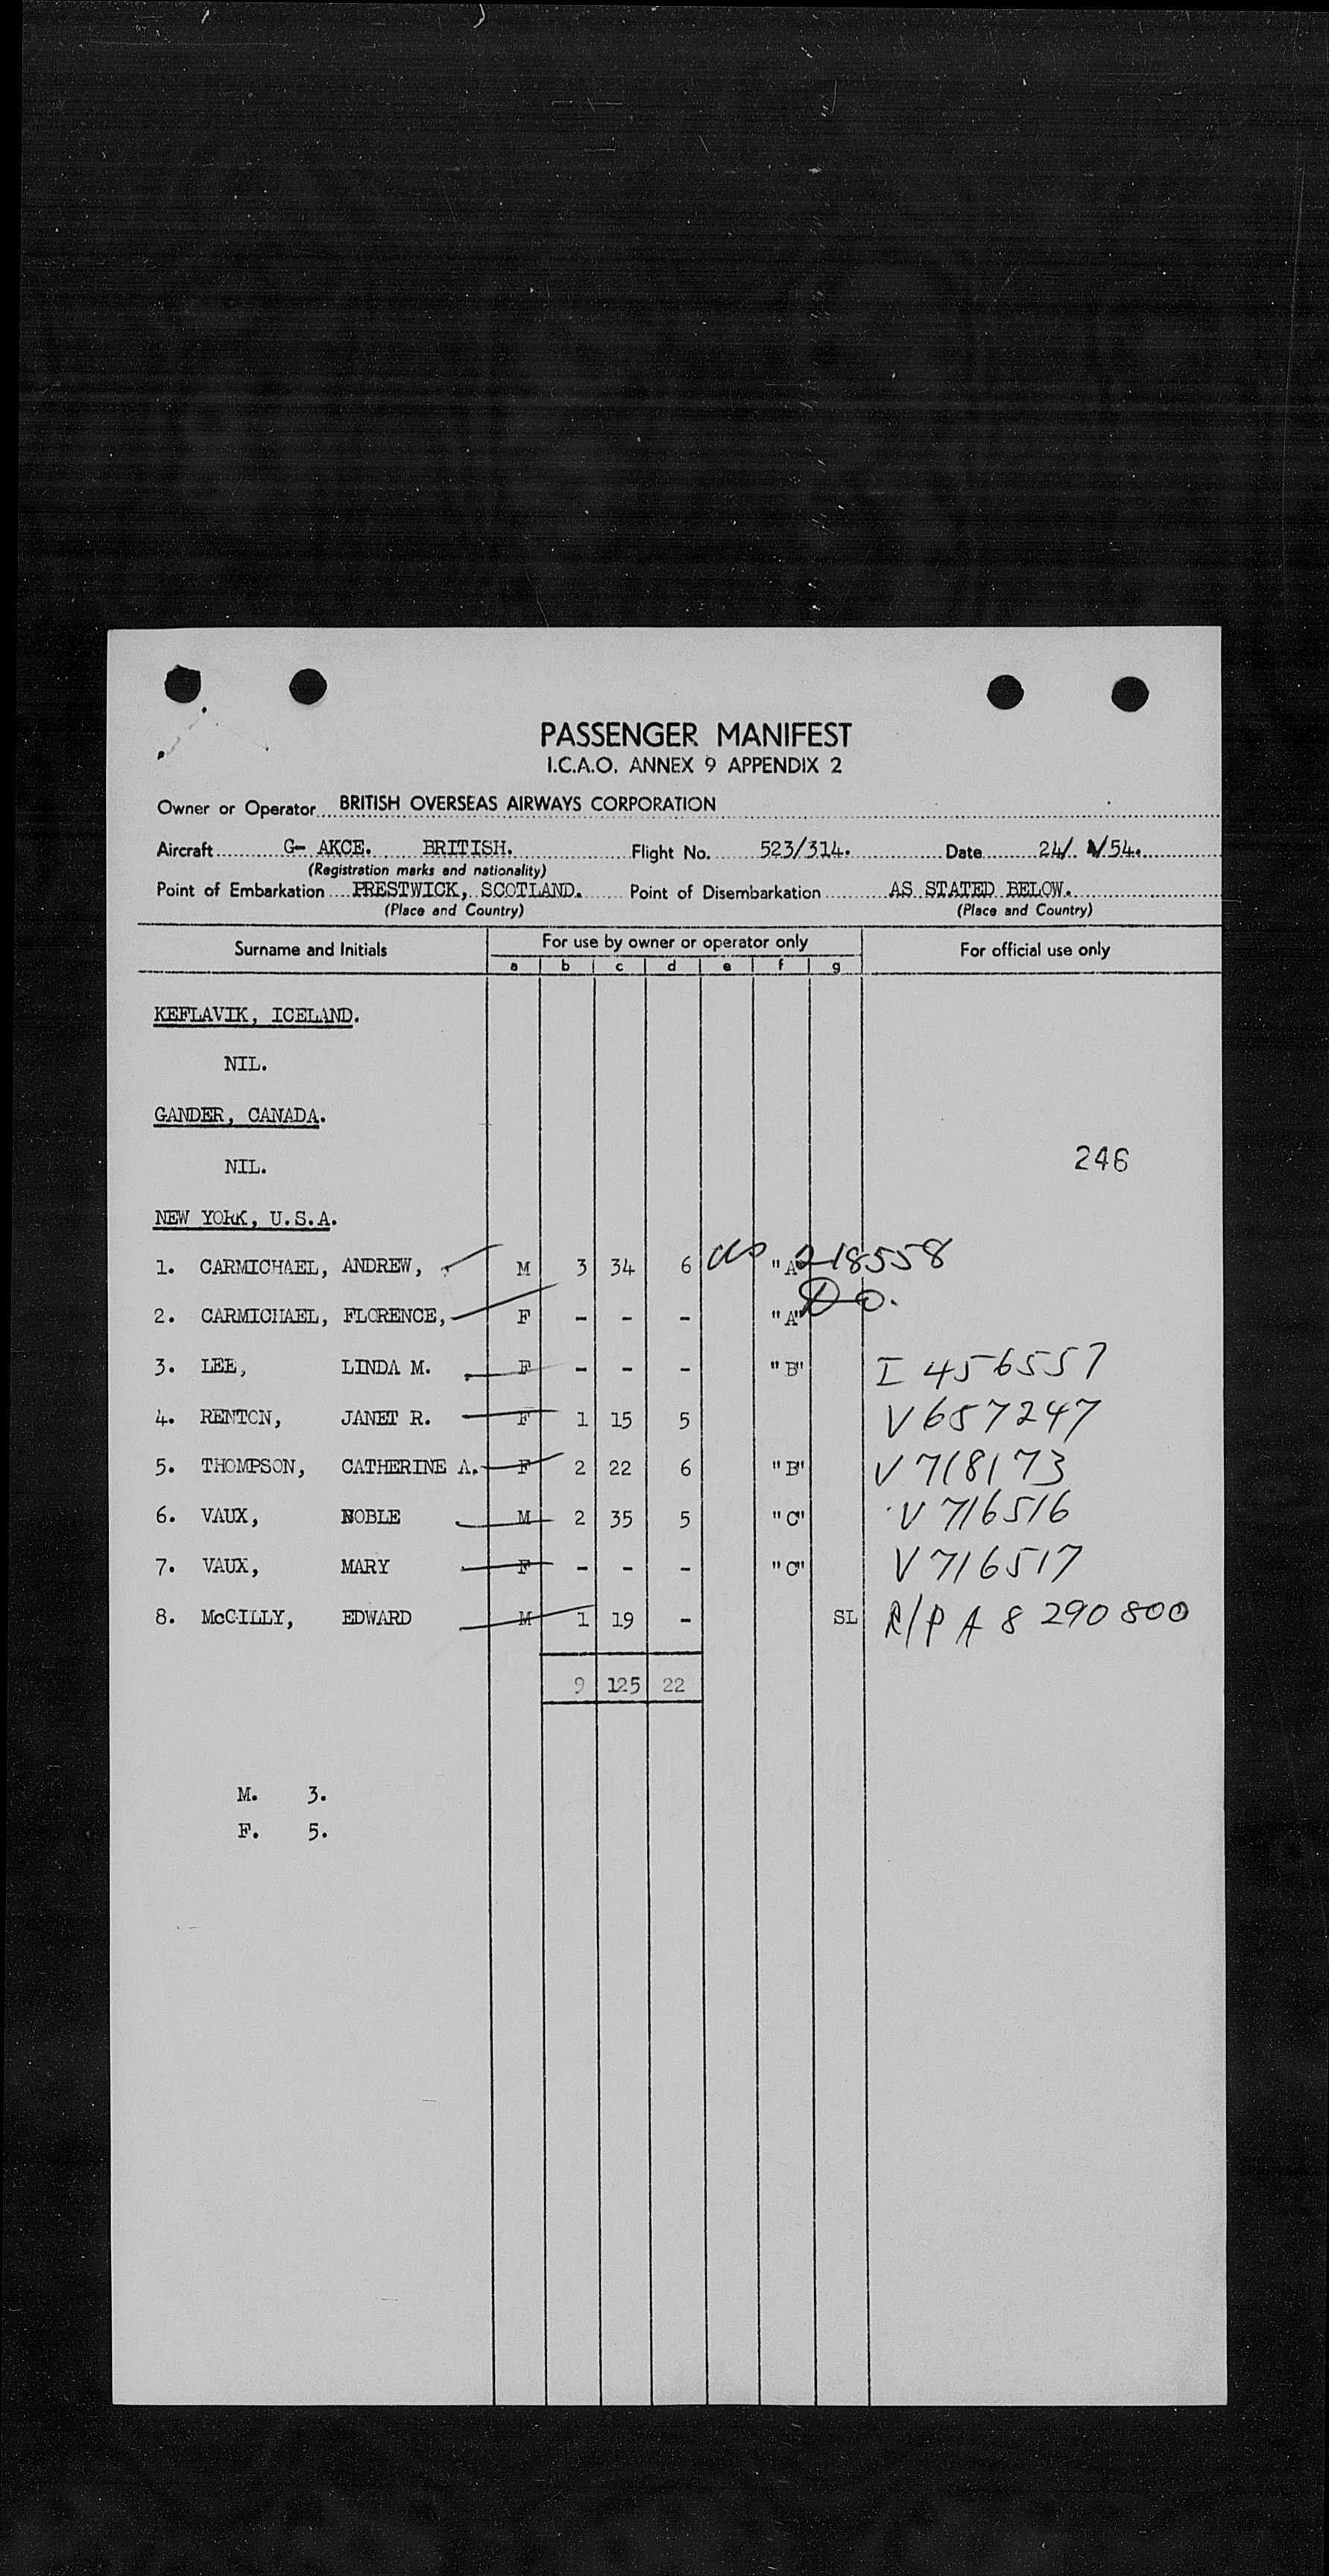 PASSENGER MANIFEST
I.C.A.O. ANNEX 9 APPENDIX 2
Owner or Operator BRITISH OVERSEAS AIRWAYS CORPORATION
Aircraft G- AKCE. BRITISH. Flight No. 523/314. Date 24/ /54.
(Registration marks and nationality)
Point of Embarkation PRESTWICK, SCOTLAND. Point of Disembarkation AS STATED BELOW.
(Place and Country) (Place and Country)
Surname and Initials For use by owner or operator only For official use only
a b c d e f g
KEFLAVIK, ICELAND.
NIL.
GANDER, CANADA.
NIL. 246
NEW YORK, U.S.A.
1. CARMICHAEL, ANDREW, M 3 34 6 "A" 218558
2. CARMICHAEL, FLORENCE, F - - - "A" Do.
3. LEE, LINDA M. F - - - "B" I 456557
4. RENTON, JANET R. F 1 15 5 V 657247
5. THOMPSON, CATHERINE A. F 2 22 6 "B" V 718173
6. VAUX, NOBLE M 2 35 5 "C" V 716516
7. VAUX, MARY F - - - "C" V 716517
8. McGILLY, EDWARD M 1 19 - SL R/P A 8 290 800
9 125 22
M. 3.
F. 5.